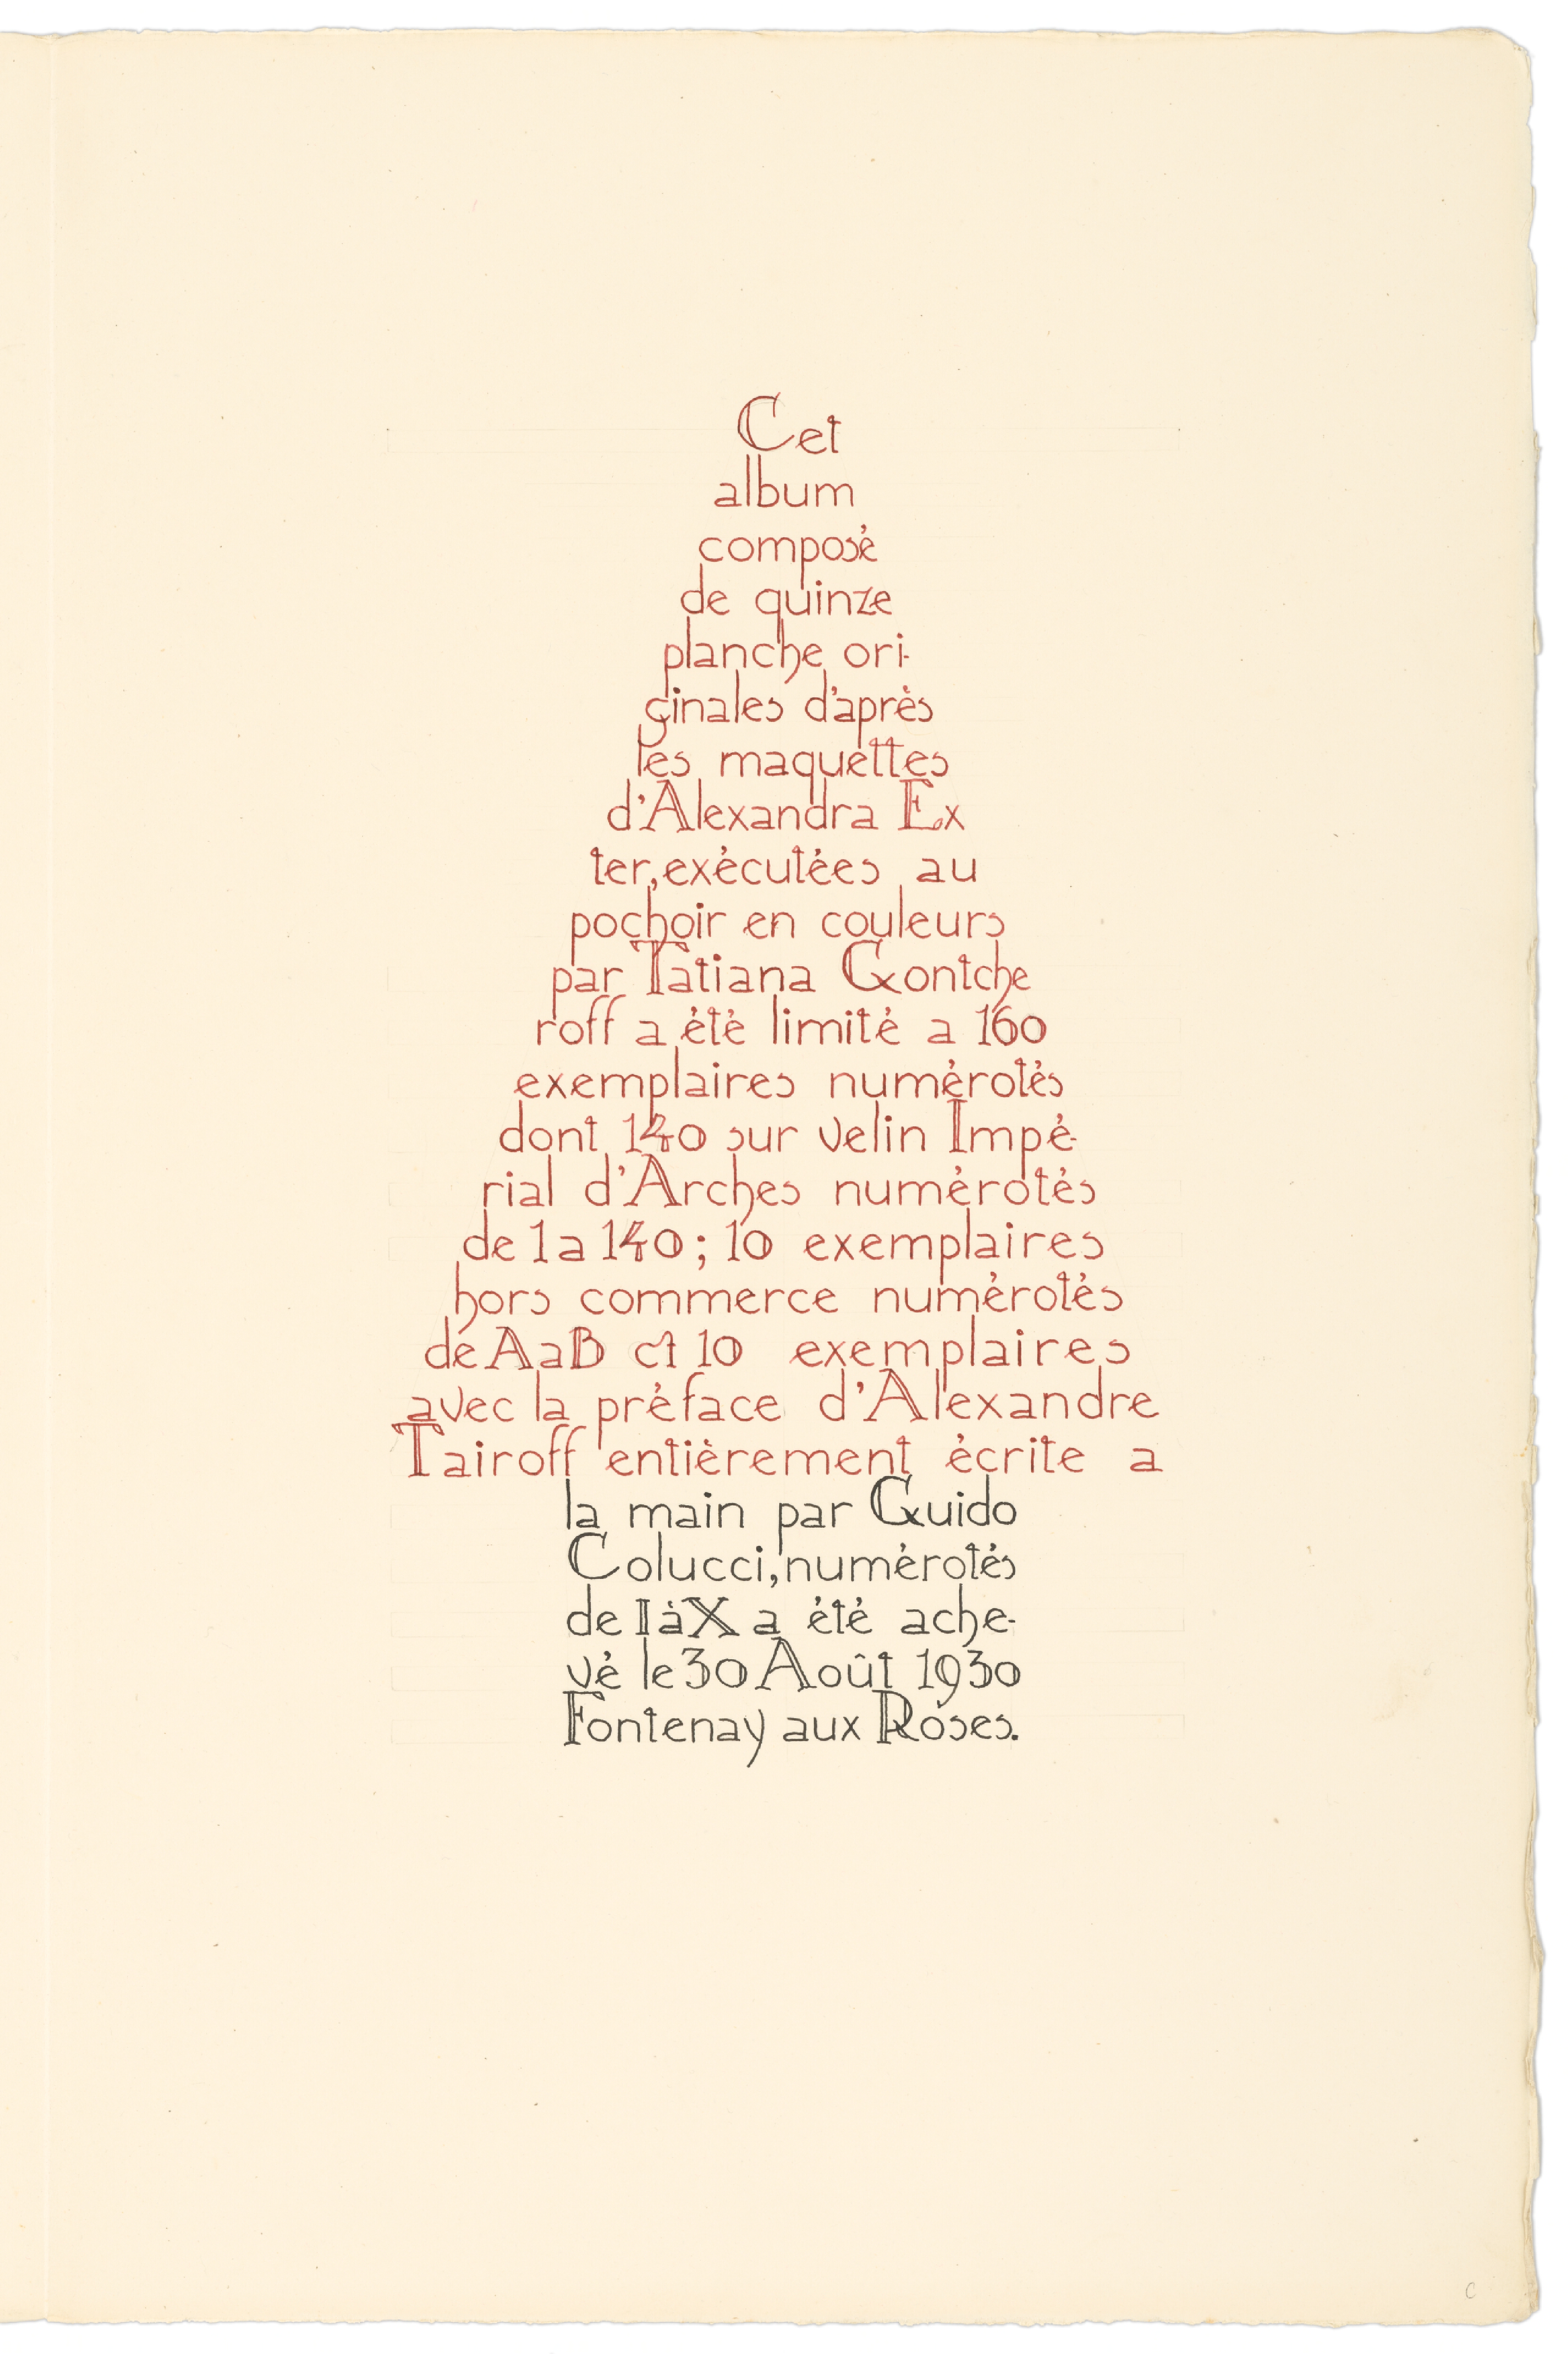 Cet
album
composé
de quinze
planche ori-
ginales d'après
les maquettes
d'Alexandra Ex
ter, exécutées au
pochoir en couleurs
par Tatiana Gontche
roff a été limité a 160
exemplaires numérotés
dont 140 sur velin Impé-
rial d'Arches numérotés
de 1 a 140 ; 10 exemplaires
hors commerce numérotés
de A a B et 10 exemplaires
avec la préface d'Alexandre
Tairoff entièrement écrite a
la main par Guido
Colucci, numérotés
de I à X a été ache-
vé le 30 Août 1930
Fontenay aux Roses.
C